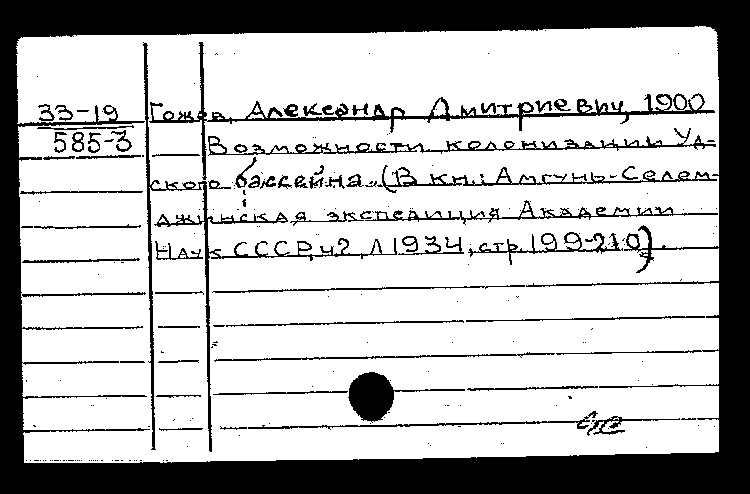 33-19 Гожев, Александр Дмитриевич, 1900
585-3 Возможности колонизации Уд-
ского бассейна. (В кн.: Амгунь-Селем-
джинская экспедиция Академии
Наук СССР, ч2, Л 1934, стр. 199-210).